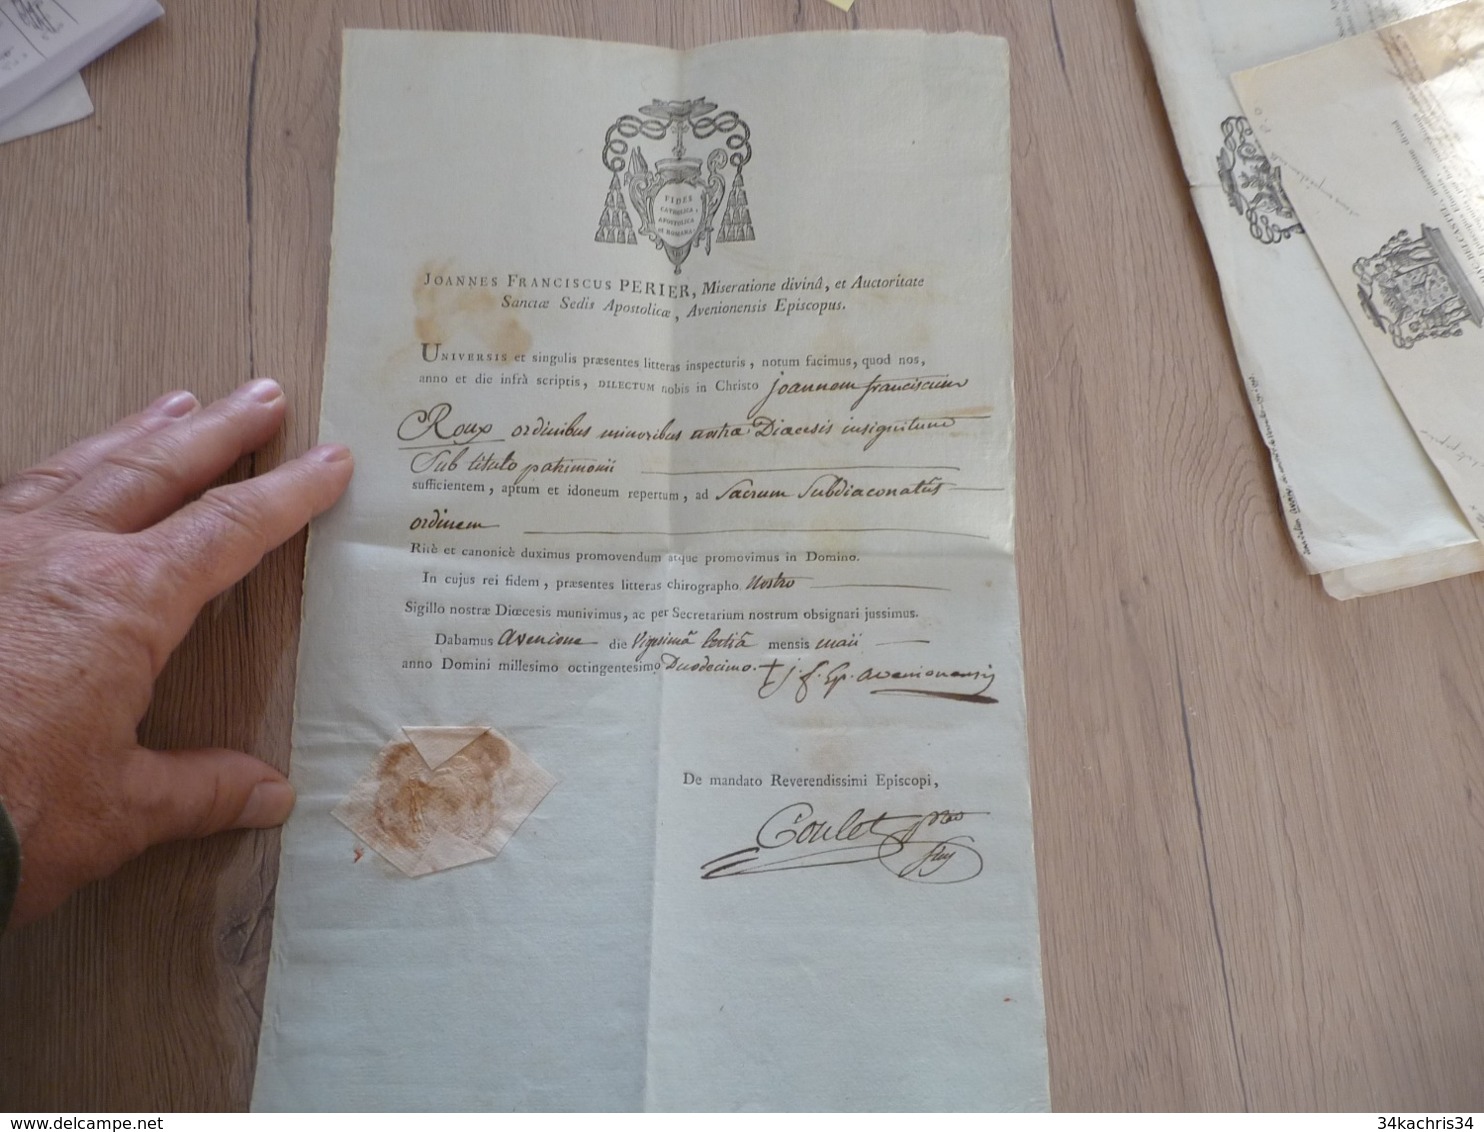 FIDES
CATHOLICA,
APOSTOLICA
et ROMANA.
JOANNES FRANCISCUS PERIER, Miseratione divinâ, et Auctoritate
Sanctæ Sedis Apostolicæ, Avenionensis Episcopus.
UNIVERSIS et singulis præsentes litteras inspecturis, notum facimus, quod nos,
anno et die infrà scriptis, DILECTUM nobis in Christo joannem franciscum
Roux ordinibus minoribus nostræ Diœcesis insignitum
Sub titulo patrimonii
sufficientem, aptum et idoneum repertum, ad Sacrum Subdiaconatûs
ordinem
Ritè et canonicè duximus promovendum atque promovimus in Domino.
In cujus rei fidem, præsentes litteras chirographo nostro
Sigillo nostræ Diœcesis munivimus, ac per Secretarium nostrum obsignari jussimus.
Dabamus avenione die Vigesimâ tertiâ mensis maii
anno Domini millesimo octingentesimo Duodecimo. † j. f. Ep. avenionensis
De mandato Reverendissimi Episcopi,
Coulet
34kachris34
delcampe.net